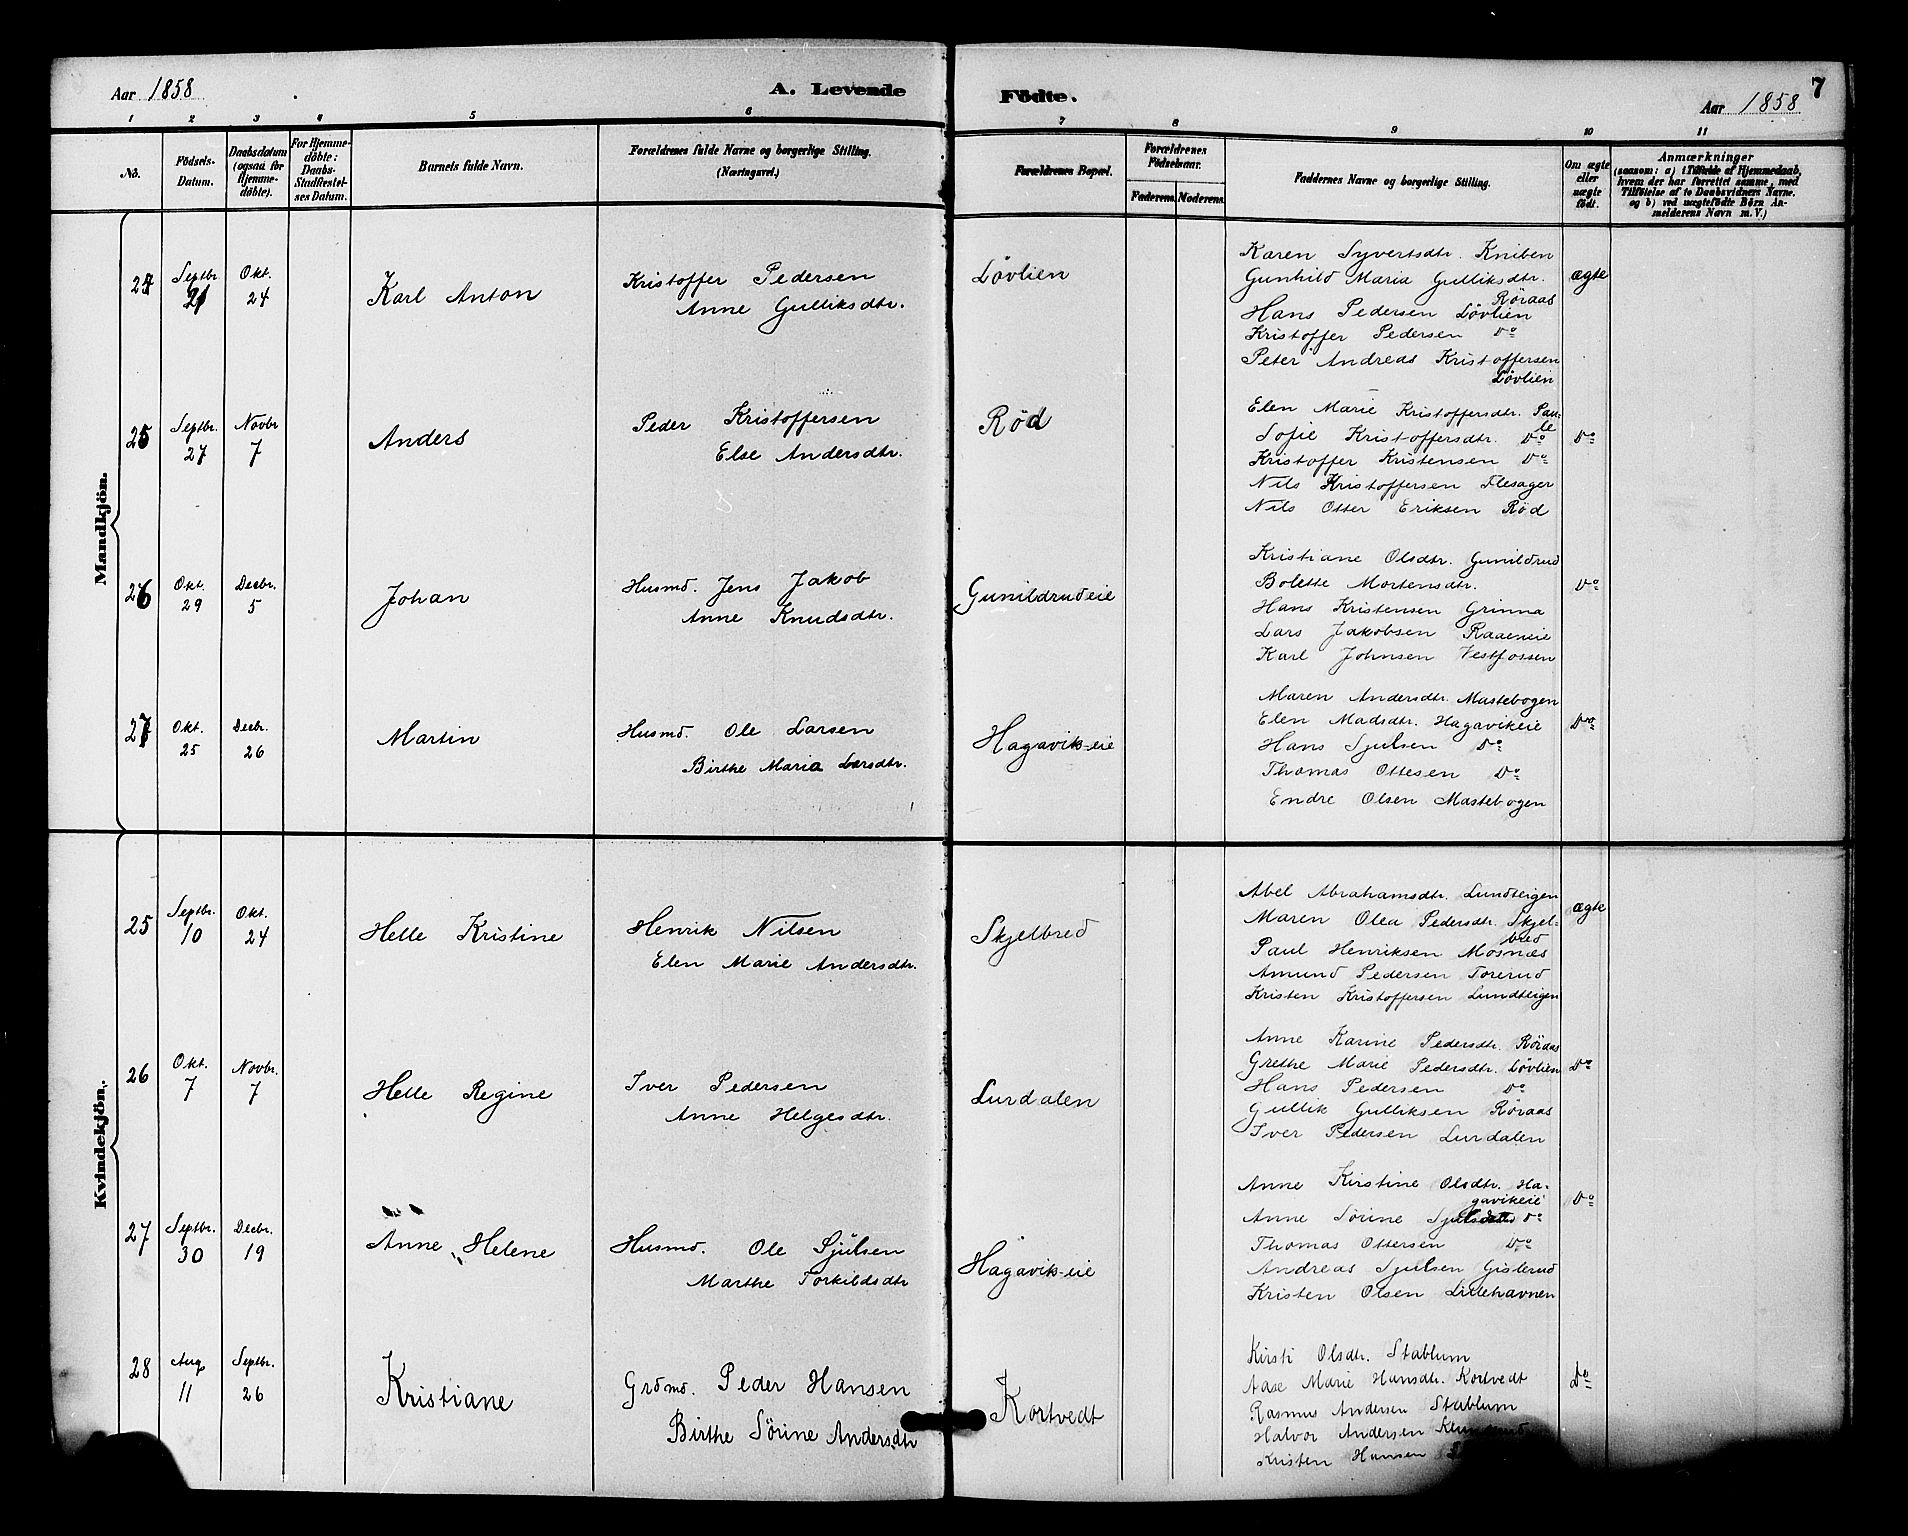 Aar 1858
A. Levende
Födte.
7
Aar 1858
1 2 3 4 5 6 7 8 9 10 11
No.
Födsels-
Datum.
Daabsdatum
(ogsaa för
Hjemme-
döbte).
For Hjemme-
döbte:
Daabs-
Stadfæstel-
ses Datum.
Barnets fulde Navn.
Forældrenes fulde Navne og borgerlige Stilling.
(Næringsvei.)
Forældrenes Bopæl.
Forældrenes
Födselsaar.
Faderens.
Moderens.
Faddernes Navne og borgerlige Stilling.
Om ægte
eller
uægte
födt.
Anmærkninger
(saasom: a) i Tilfælde af Hjemmedaab,
hvem der har forrettet samme, med
Tilföielse af to Daabsvidners Navne,
og b) ved uægtefödte Börn An-
melderens Navn m. V.)
Mandkjön.
24
Septbr.
21
Okt.
24
Karl Anton
Kristoffer Pedersen
Anne Gulliksdtr.
Lövlien
Karen Syvertsdtr. Kniben
Gunhild Maria Gulliksdtr.
Röraas
Hans Pedersen Lövlien
Kristoffer Pedersen Do
Peter Andreas Kristoffersen
Lövlien
ægte
25
Septbr.
27
Novbr
7
Anders
Peder Kristoffersen
Else Andersdtr.
Röd
Elen Marie Kristoffersdtr.
Sofie Kristoffersdtr. Do
Kristoffer Kristensen Do
Nils Kristoffersen Flesager
Nils Otter Eriksen Röd
Do
26
Okt.
29
Decbr.
5
Johan
Husmd. Jens Jakob
Anne Knudsdtr.
Gunildrudeie
Kristiane Olsdtr. Gunildrud
Bolette Mortensdtr.
Hans Kristensen Grinna
Lars Jakobsen Raaeneie
Karl Johnsen Vestfossen
Do
27
Okt.
25
Decbr.
26
Martin
Husmd. Ole Larsen
Birthe Maria Larsdtr.
Hagavik-eie
Maren Andersdtr. Mastebogen
Elen Madsdtr. Hagavikeie
Hans Sjulsen Do
Thomas Ottesen Do
Endre Olsen Mastebogen
Do
Kvindekjön.
25
Septbr.
10
Okt.
24
Helle Kristine
Henrik Nilsen
Elen Marie Andersdtr.
Skjelbred
Abel Abrahamsdtr. Lundteigen
Maren Olea Pedersdtr. Skjel-
bred
Paul Henriksen Mosnæs
Amund Pedersen Torerud
Kristen Kristoffersen Lundteigen
ægte
26
Okt.
7
Novbr.
7
Helle Regine
Iver Pedersen
Anne Helgesdtr.
Lurdalen
Anne Karine Pedersdtr. Röraas
Grethe Marie Pedersdtr. Lövlien
Hans Pedersen Do
Gullik Gulliksen Röraas
Iver Pedersen Lurdalen
Do
27
Septbr.
30
Decbr.
19
Anne Helene
Husmd. Ole Sjulsen
Marthe Torkildsdtr
Hagavik-eie
Anne Kirstine Olsdtr. Ha-
gavikeie
Anne Sörine Do
Thomas Ottersen Do
Andreas Sjulsen Gislerud
Kristen Olsen Lillehavnen
Do
28
Aug.
11
Septbr.
26
Kristiane
Grdmd. Peder Hansen
Birthe Sörine Andersdtr
Kortvedt
Kirsti Olsdtr. Stablum
Aase Marie Hansdtr. Kortvedt
Rasmus Andersen Stablum
Halvor Andersen
Kristen Hansen
Do